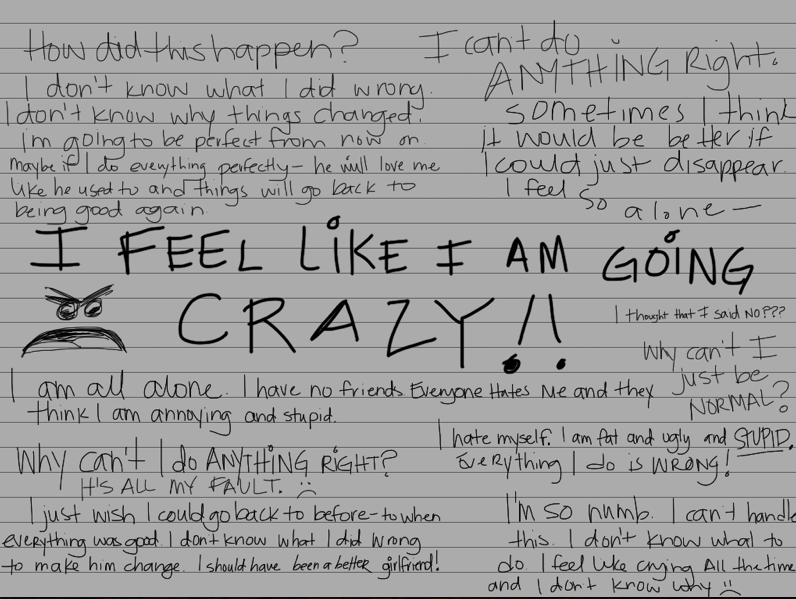 How did this happen?
I don't know what I did wrong.
I don't know why things changed.
i'm going to be perfect from now on.
maybe if I do everything perfectly- he will love me
like he used to and things will go back to
being good again.
I can't do
ANYTHING Right.
sometimes I think
it would be better if
I could just disappear.
I feel so alone—
I FEEL LIKE I AM GOING
CRAZY!!
I thought that I said NO???
Why can't I
just be
NORMAL?
I am all alone. I have no friends Everyone Hates Me and they
think I am annoying and stupid.
I hate myself. I am fat and ugly and STUPID.
Everything I do is WRONG!
Why can't I do ANYTHING RIGHT?
It'S ALL MY FAULT.
I just wish I could go back to before-to when
everything was good. I don't know what I did wrong
to make him change. I should have been a better girlfriend!
I'm so numb. I can't handle
this. I don't know what to
do. I feel like crying All the time
and I don't know why